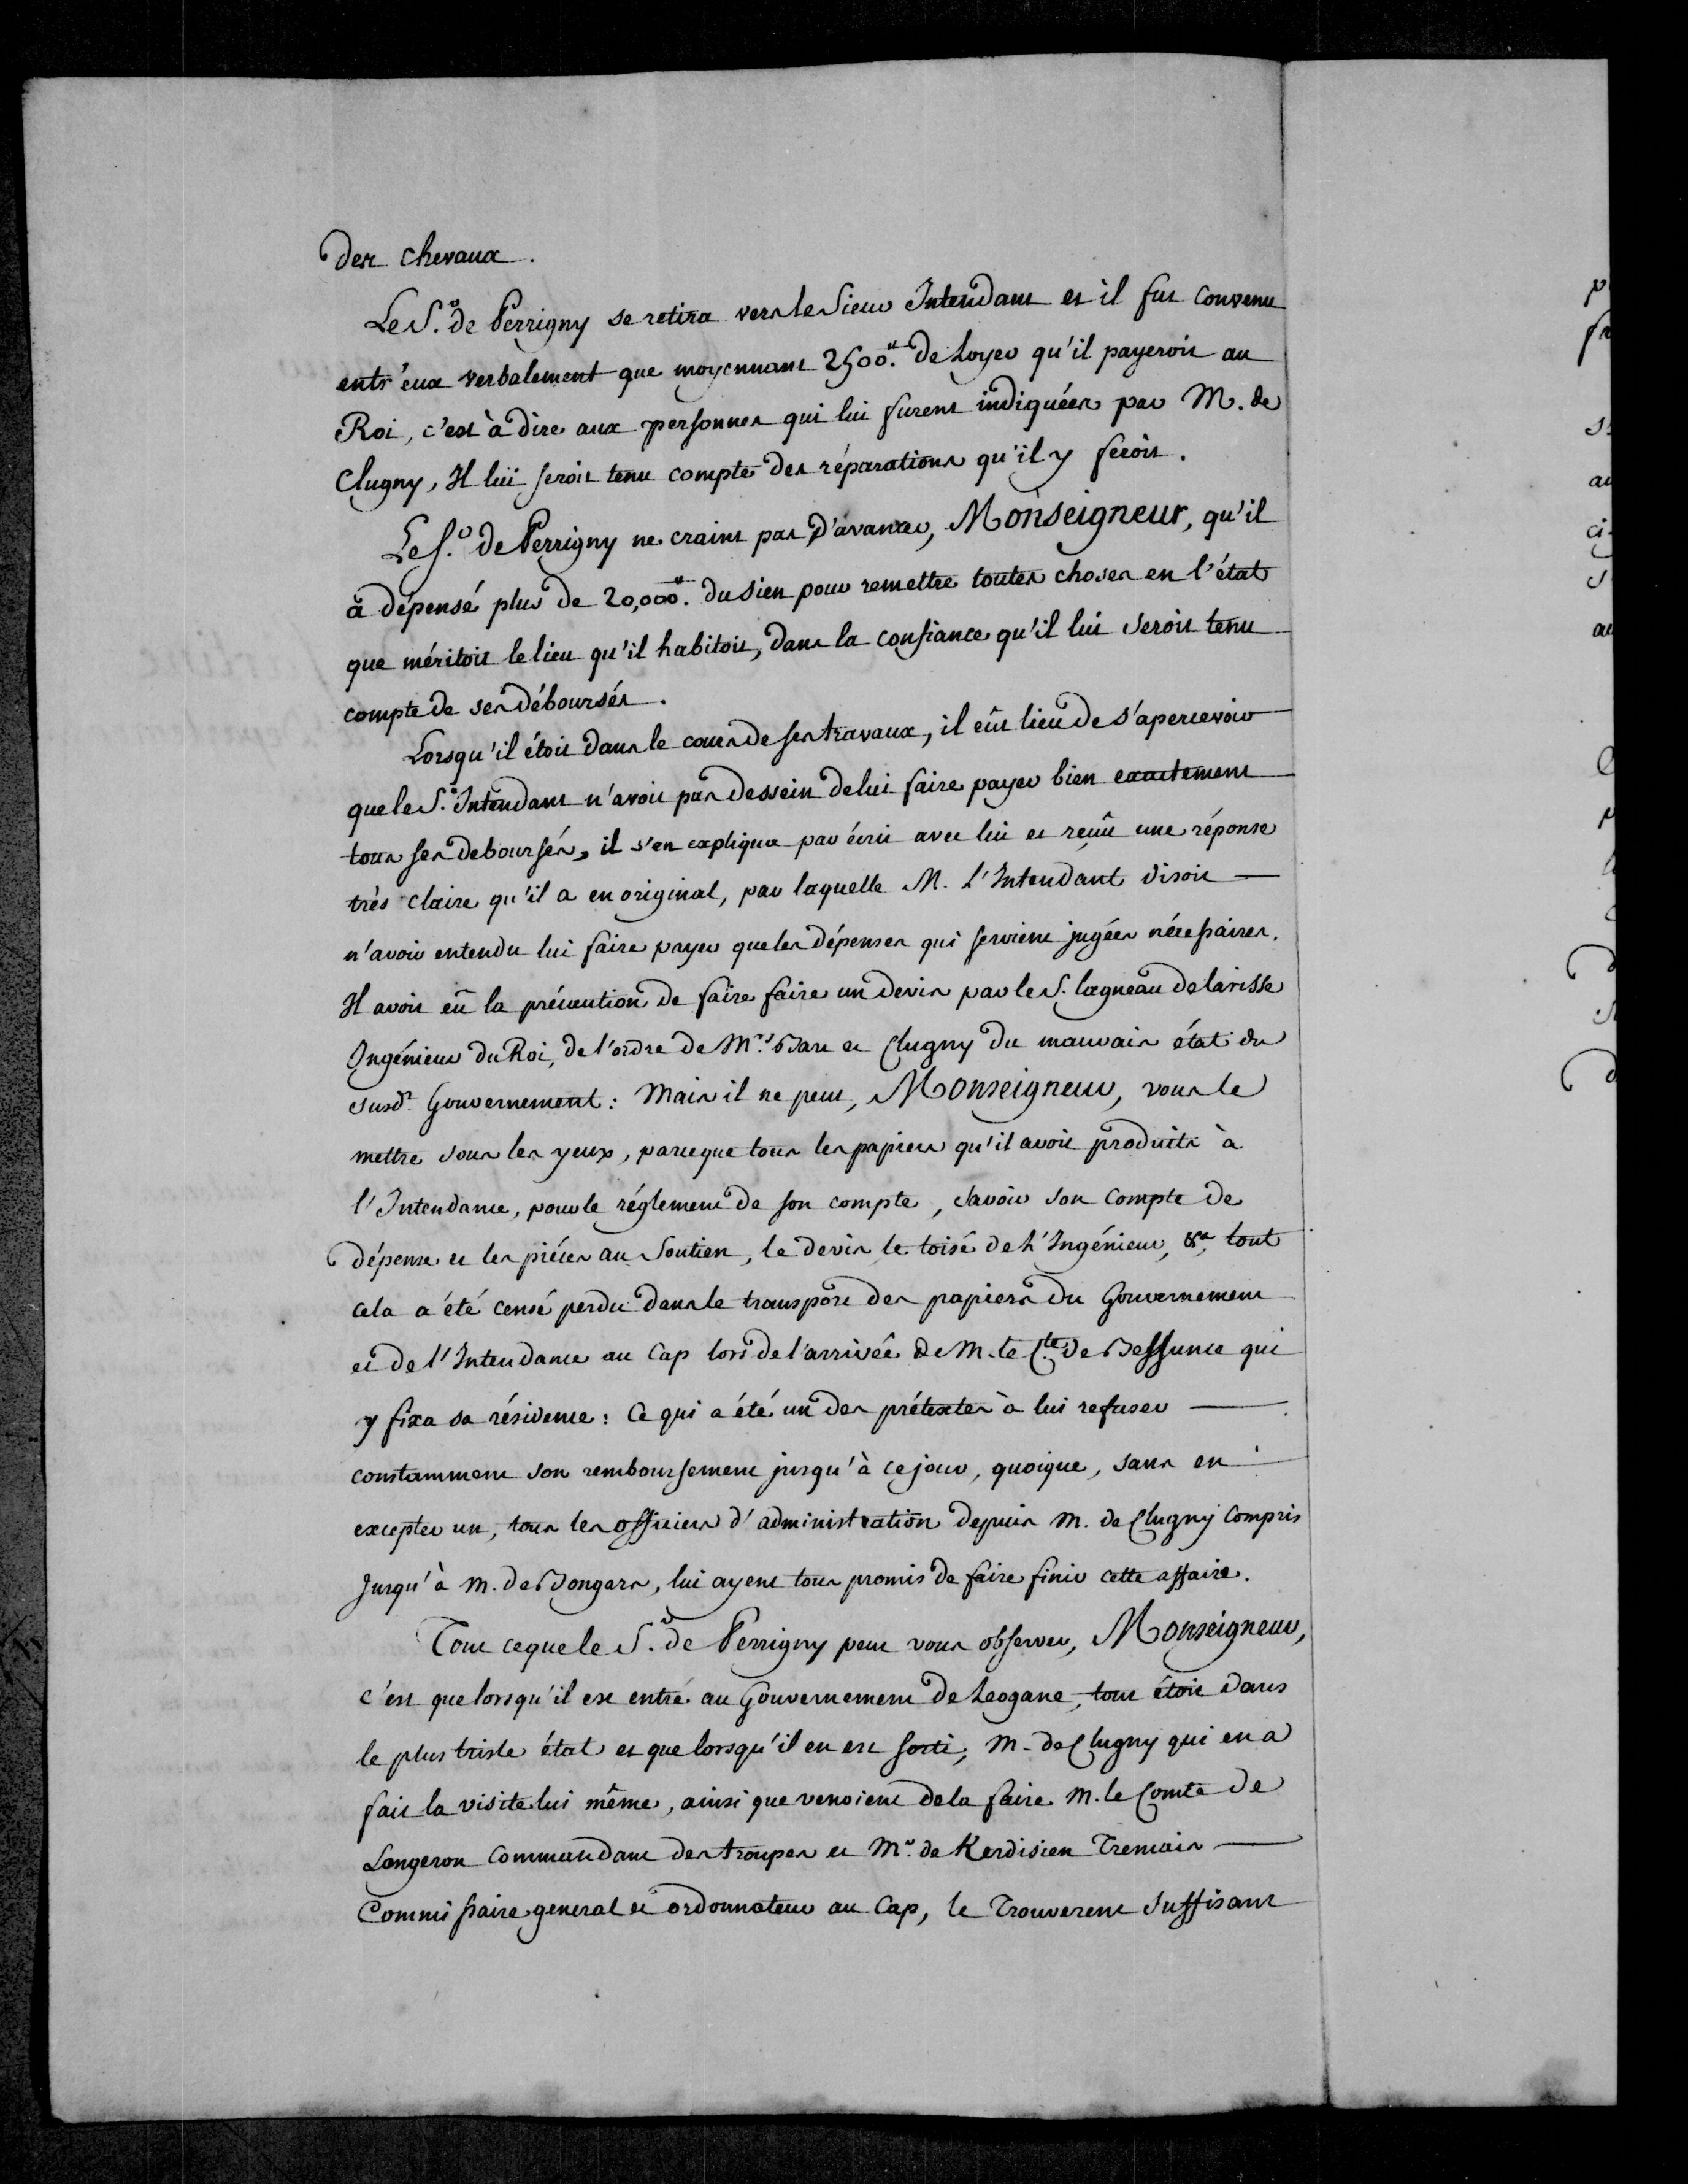 des chevaux.
Le S.r de Perrigny se retira vers le Sieur Intendant et il fut convenu
entr'eux verbalement que moyennant 2500.# de Loyer qu'il payeroit au
Roi, c'est à dire aux personnes qui lui furent indiquées par M. de
Clugny, Il lui seroit tenu compte des réparations qu'il y feroit.
Le S.r de Perrigny ne craint pas d'avancer, Monseigneur, qu'il
à dépensé plus de 20,000.# du sien pour remettre toutes choses en l'état
que méritoit le lieu qu'il habitoit, dans la confiance qu'il lui seroit tenu
compte de ses déboursés.
Lorsqu'il étoit dans le cours de ses travaux, il eût lieu de s'apercevoir
que le S.r Intendant n'avoit pas dessein de lui faire payer bien exactement
tous ses deboursés, il s'en expliqua par écrit avec lui et reçût une réponse
très claire qu'il a en original, par laquelle M. L'Intendant disoit
n'avoir entendu lui faire payer que les dépenses qui seroient jugées nécessaires.
Il avoit eû la précaution de faire faire un devis par le S. lagneau delarisse
Ingénieur du Roi, de l'ordre de M.rs Bart et Clugny du mauvais état du
susd.t Gouvernement: Mais il ne peut, Monseigneur, vous le
mettre sous les yeux, parceque tous les papiers qu'il avoit produits à
l'Intendance, pour le réglement de son compte, savoir son compte de
dépense et les piéces au Soutien, le devis le toisé de L'Ingénieur, &a, tout
cela a été censé perdu dans le transport des papiers du Gouvernement
et de l'Intendance au Cap lors de l'arrivée de M. le C.te de Belsunce qui
y fixa sa résidence: Ce qui a été un des prétextes à lui refuser
constamment son remboursement jusqu'à ce jour, quoique, sans en
excepter un, tous les officiers d'administration depuis M. de Clugny compris
jusqu'à M. de Bongars, lui ayent tous promis de faire finir cette affaire.
Tout ceque le S.r de Perrigny peut vous observer, Monseigneur,
c'est que lorsqu'il est entré au Gouvernement de Leogane, tout étoit dans
le plus triste état et que lorsqu'il en est sorti, M. de Clugny qui en a
fait la visite lui même, ainsi que venoient de la faire M. le Comte de
Langeron Commandant des troupes et M.r de Kerdisien Tremais
Commissaire general et ordonnateur au Cap, le Trouverent suffisant